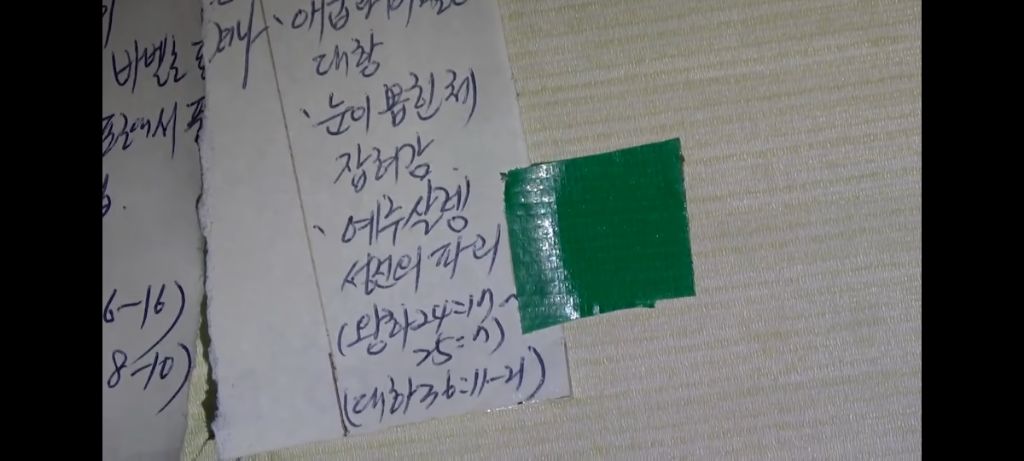 바벨론
6-16)
8-10)
대항
· 눈이 뽑힌 체
잡혀감.
· 예루살렘
성전의 파괴
(왕하24=17~
25=7)
(대하36=11-21)